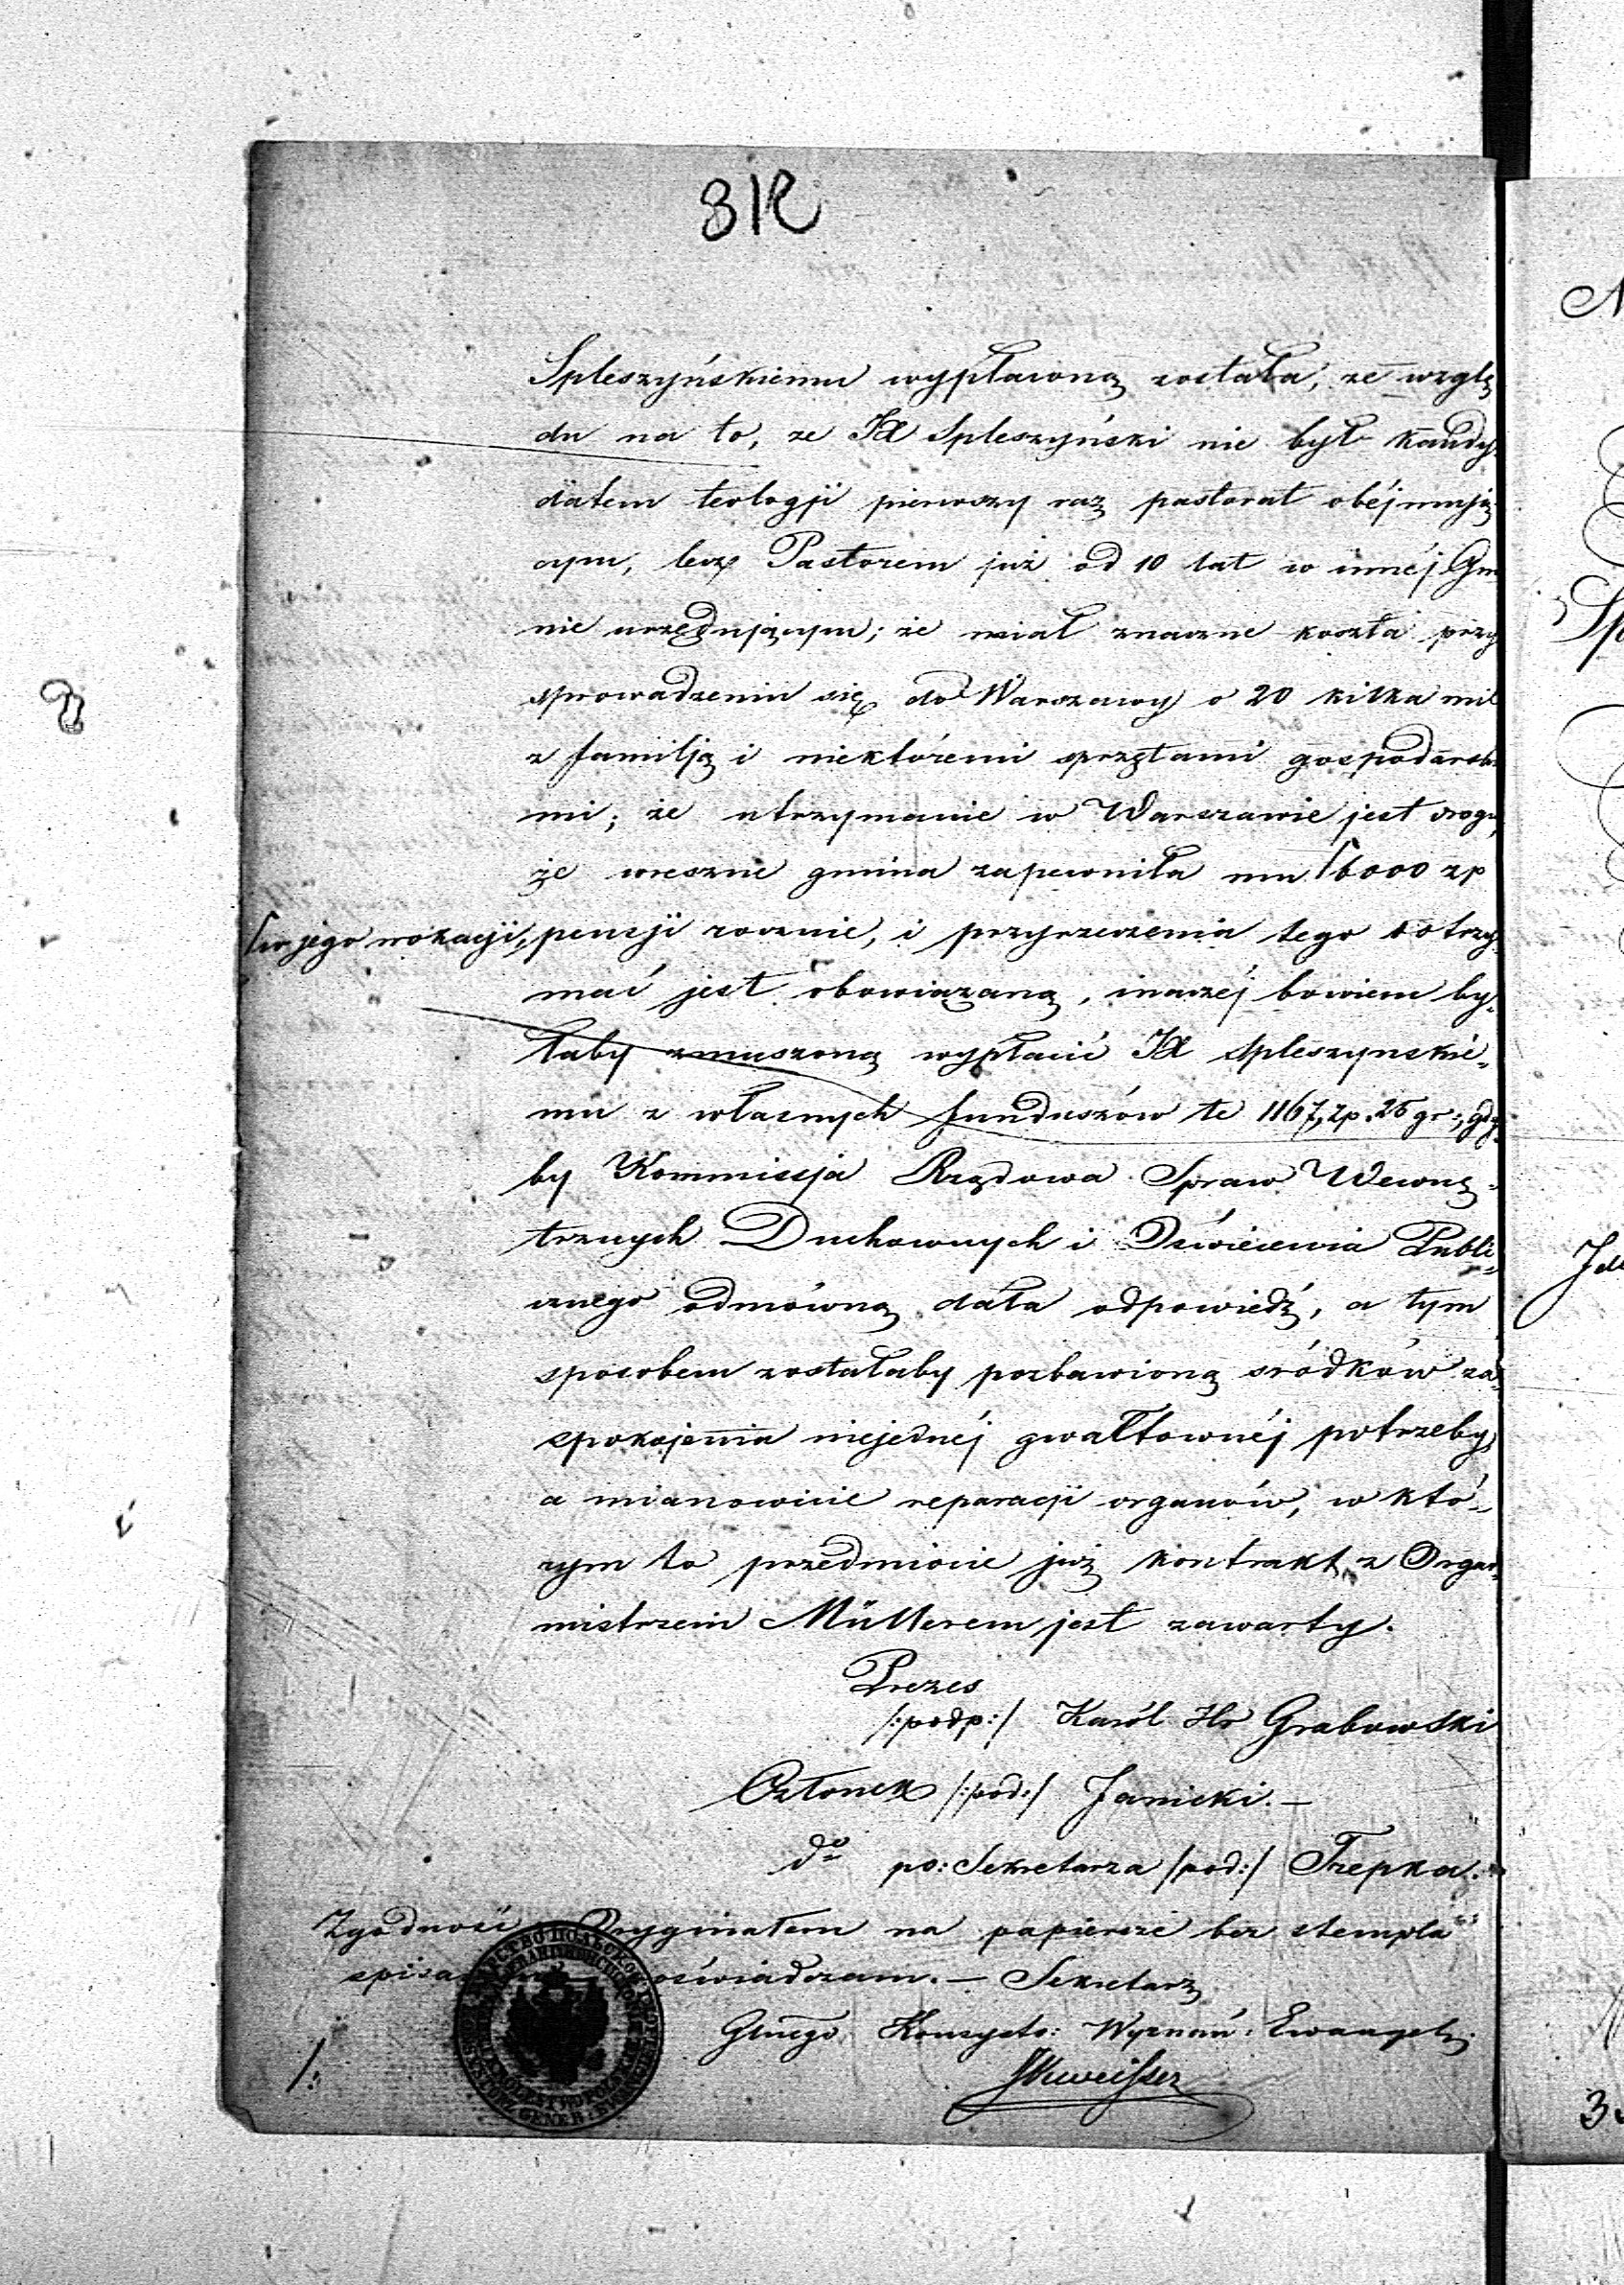 812
Spleszyńskiemu wypłaconą została, ze wzglę
du na to, ze JX Spleszyński nie był kandy
datem teologji pierwszy raz pastorat obéjmują
cym, lecz Pastorem już od 10 lat w innéj Gm
nie urzędującym; że miał znaczne koszta przy
sprowadzeniu się do Warszawy o 20 kilka mil
z familją i niektóremi sprzętami gospodarsk
mi; że utrzymanie w Warszawie jest drogie,
że wreszcie gmina zapewniła mu ⌈6000 zp
⌈w jego wokacji, pensji rocznie, i przyrzeczenia tego dotrzy
mać jest obowiązaną, inaczéj bowiem by-
łaby zmuszoną wypłacić JX Spleszynskie-
mu z własnych funduszów te 1167, zp. 26 gr:, gdy
by Kommissja Rządowa Spraw Wewnę-
trznych Duchownych i Oświecenia Publi-
cznego odmówną dała odpowiedź, a tym
sposobem zostałaby pozbawioną sródków za-
spokojenia niejednéj gwałtownéj potrzeby,
a mianowicie reparacji organów, w któ-
rym to przedmiocie już kontrakt z Organ-
mistrzem Müllerem jest zawarty.
Prezes
/:podp:/ Karól Hr Grabowski
Członek /:pod:/ Janicki.—
do po: Sekretarza /pod:/ Trepka.
Zgodność Oryginałem na papierze bez stempla
oświadczam.— Sekretarz
Głnego Konsysto: Wyznań: Ewangel:
/: